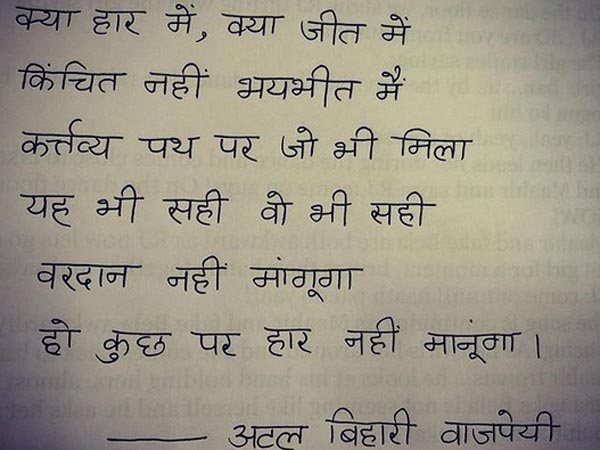 क्या हार में, क्या जीत में
किंचित नहीं भयभीत मैं
कर्त्तव्य पथ पर जो भी मिला
यह भी सही वो भी सही
वरदान नहीं मांगूगा
हो कुछ पर हार नहीं मानूंगा।
—— अटल बिहारी वाजपेयी